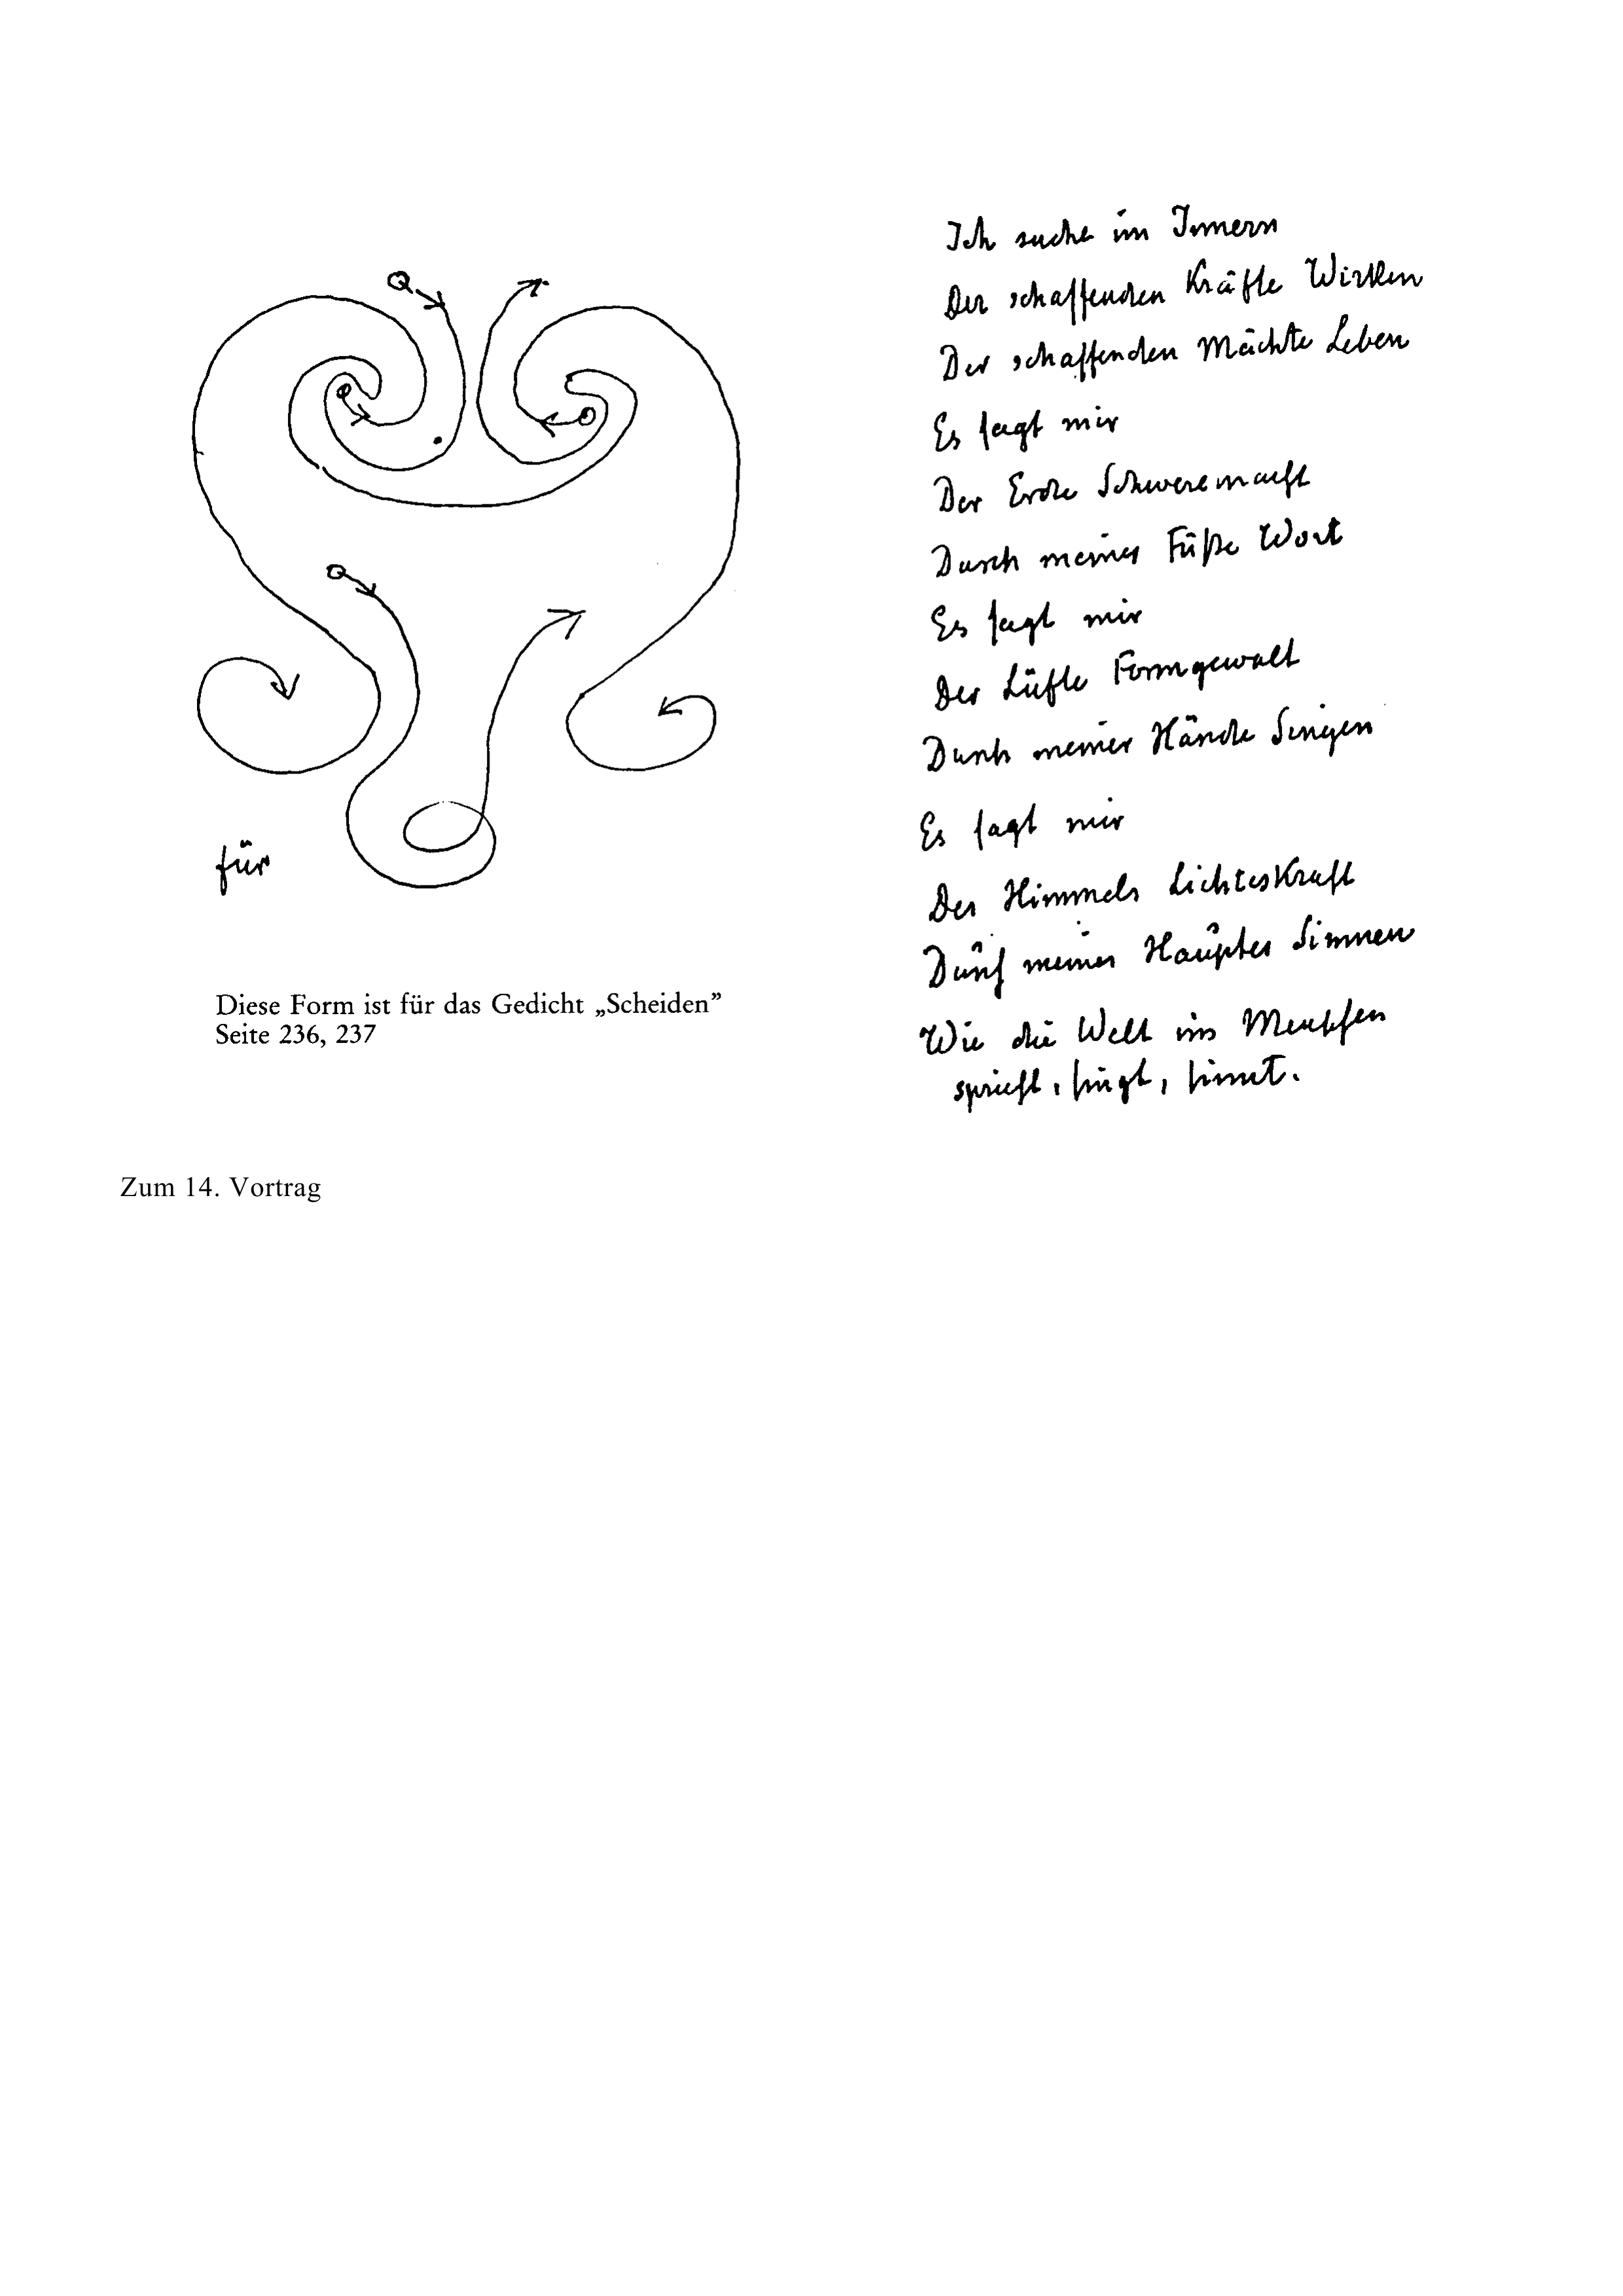 für
Diese Form ist für das Gedicht „Scheiden”
Seite 236, 237
Ich suche im Innern
Der schaffenden Kräfte Wirken
Der schaffenden Mächte Leben
Es sagt mir
Der Erde Schweremacht
Durch meiner Füße Wort
Es sagt mir
Der Lüfte Formgewalt
Durch meiner Hände Singen
Es sagt mir
Des Himmels Lichteskraft
Durch meines Hauptes Sinnen
Wie die Welt im Menschen
spricht, singt, sinnt.
Zum 14. Vortrag